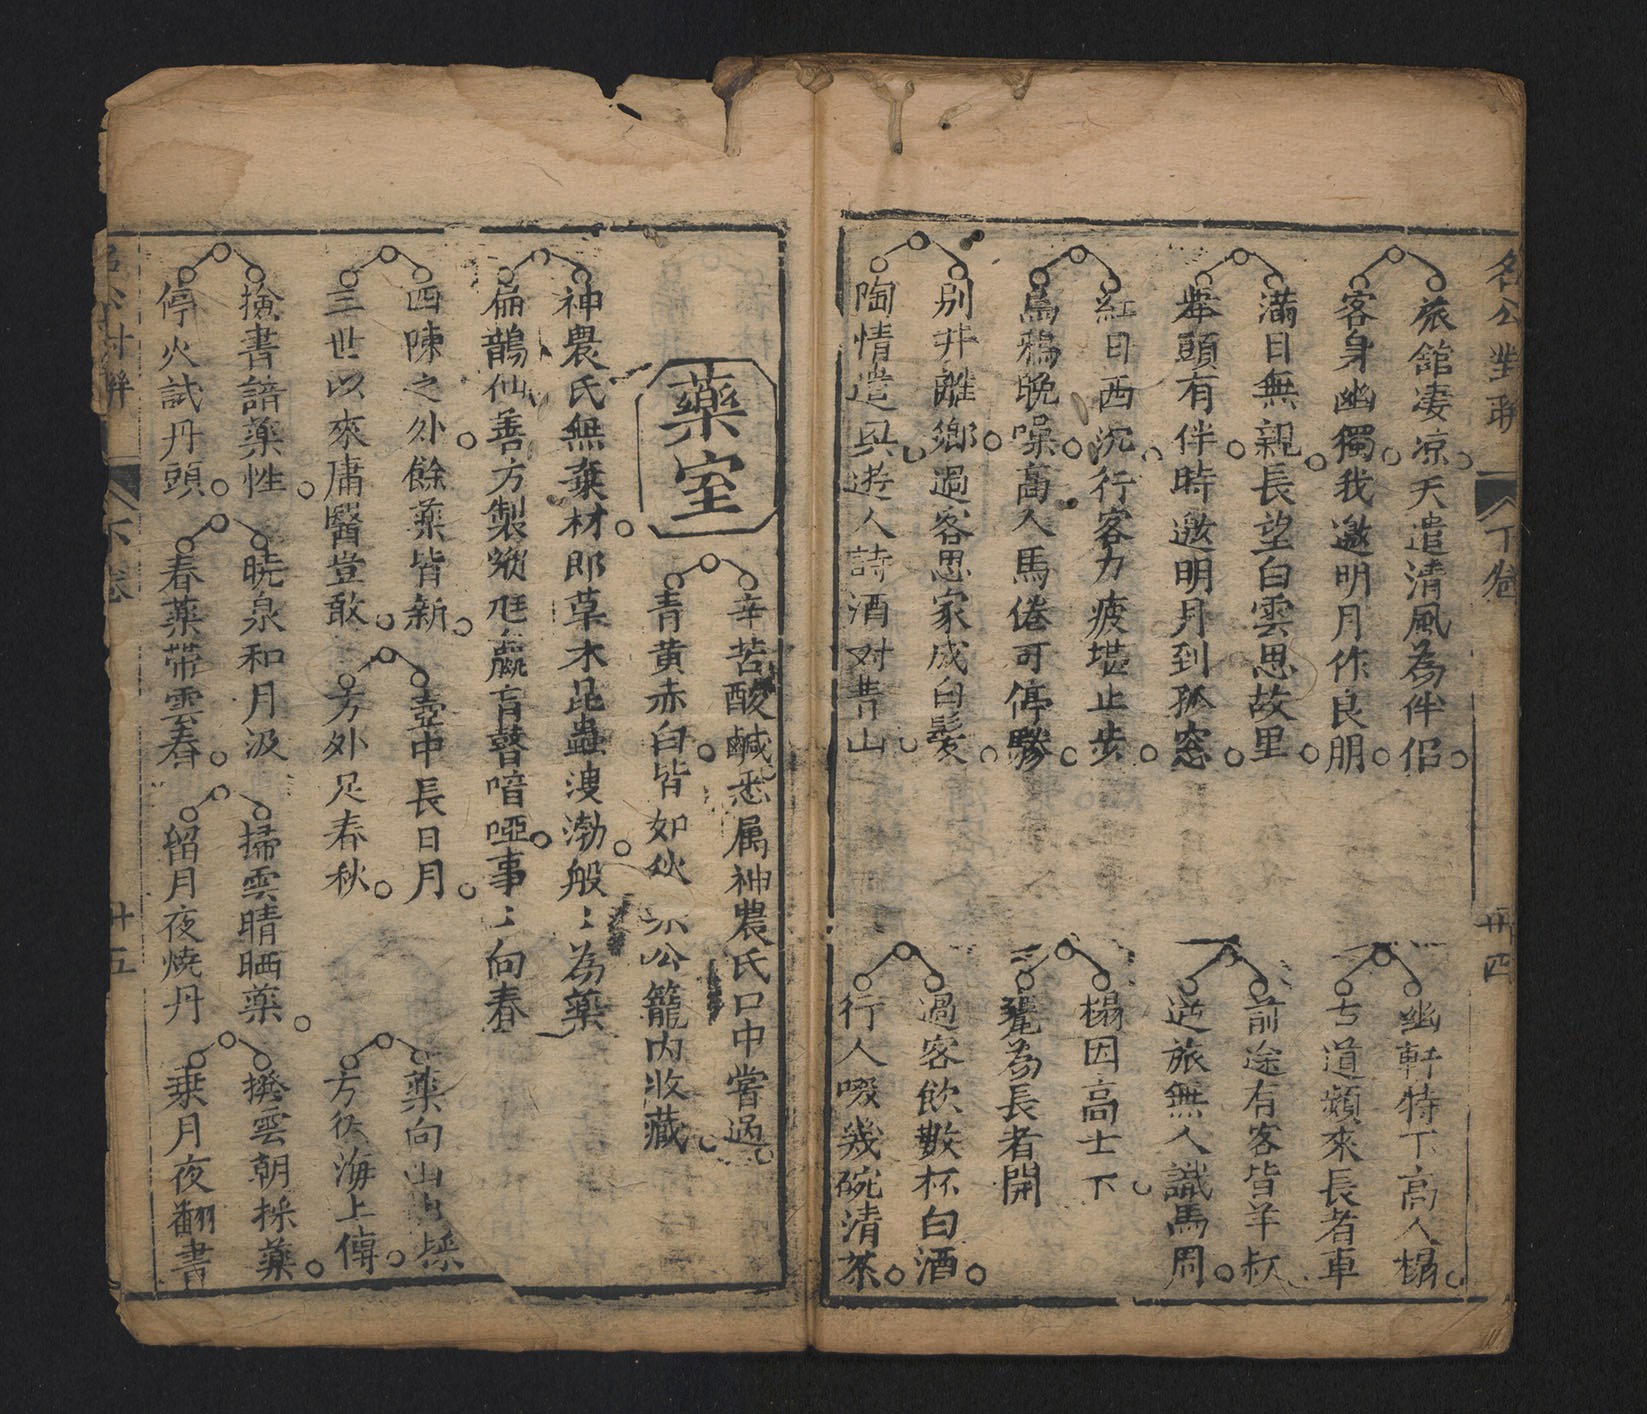 名公對聯 下卷 卄四
旅館凄凉天遣清風為伴侣 幽軒特下高人榻
客身幽獨我邀明月作良朋 古道頻來長者車
滿目無親長望白雲思故里 前途有客皆羊叔
舉頭有伴時邀明月到孤窓 逆旅無人識馬周
紅日西沉行客力疲堪止步 榻因高士下
烏鴉晚噪萬人馬倦可停驂 為長者開
别井離鄉過客思家成白髪 過客飲數杯白酒
陶情遣興遊人詩酒对青山 行人啜幾碗清茶
藥室
辛苦酸鹹悉属神農氏口中嘗過
青黄赤白皆如狄公籠内收藏
神農氏無棄材郎草木昆蟲溲渤般〻為藥
扁鵲仙善方製雖尫羸盲聾喑啞事〻向春
四陳之外餘藥皆新 壺中長日月 藥向山中採
三世以來庸醫豈敢 方外足春秋 方從海上傳
撿書諳藥性 曉泉和月汲 掃雲晴晒藥 撥雲朝採藥
停火試丹頭 春藥帶雲舂 留月夜燒丹 乗月夜翻書
名公對聯 下卷 卄五